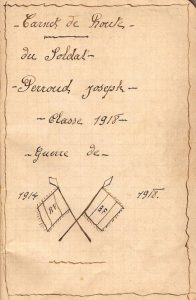 - Carnet de Route
du Soldat -
- Perroud Joseph -
- Classe 1918 -
- Guerre de -
1914 1918.